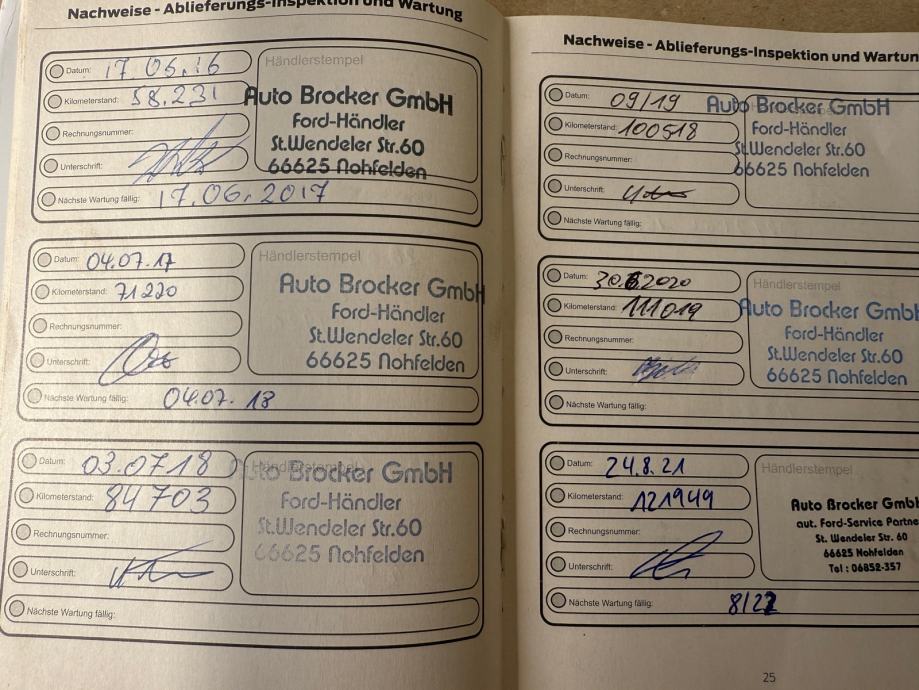 Nachweise - Ablieferungs-Inspektion und Wartung
Datum: 17 05.16
Händlerstempel
Kilometerstand: 58.231
Auto Brocker GmbH
Rechnungsnummer:
Ford-Händler
St.Wendeler Str.60
Unterschrift:
66625 Nohfelden
Nächste Wartung fällig: 17.06.2017
Datum: 04.07.17
Händlerstempel
Kilometerstand: 71220
Auto Brocker GmbH
Rechnungsnummer:
Ford-Händler
St.Wendeler Str.60
Unterschrift:
66625 Nohfelden
Nächste Wartung fällig: 04.07.18
Datum: 03.0718
Händlerstempel
Auto Brocker GmbH
Kilometerstand: 84703
Ford-Händler
Rechnungsnummer:
St.Wendeler Str.60
66625 Nohfelden
Unterschrift:
Nächste Wartung fällig:
Nachweise - Ablieferungs-Inspektion und Wartun
Datum: 09/19
Auto Brocker GmbH
Kilometerstand: 100518
Ford-Händler
Rechnungsnummer:
St.Wendeler Str.60
66625 Nohfelden
Unterschrift:
Nächste Wartung fällig:
Datum: 30.6.2020
Händlerstempel
Kilometerstand: 111019
Auto Brocker GmbH
Rechnungsnummer:
Ford-Händler
St.Wendeler Str.60
Unterschrift:
66625 Nohfelden
Nächste Wartung fällig:
Datum: 24.8.21
Händlerstempel
Kilometerstand: 121949
Auto Brocker GmbH
aut. Ford-Service Partne
Rechnungsnummer:
St. Wendeler Str. 60
66625 Nohfelden
Unterschrift:
Tel : 06852-357
Nächste Wartung fällig: 8/22
25